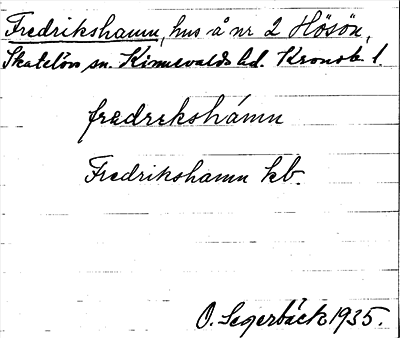 Fredrikshamn, hus å nr 2 Hösön,
Skatelöv sn. Kinnevalds hd. Kronob. l.
fredrekshámn
Fredrikshamn kb.
O. Segerbäck 1935.